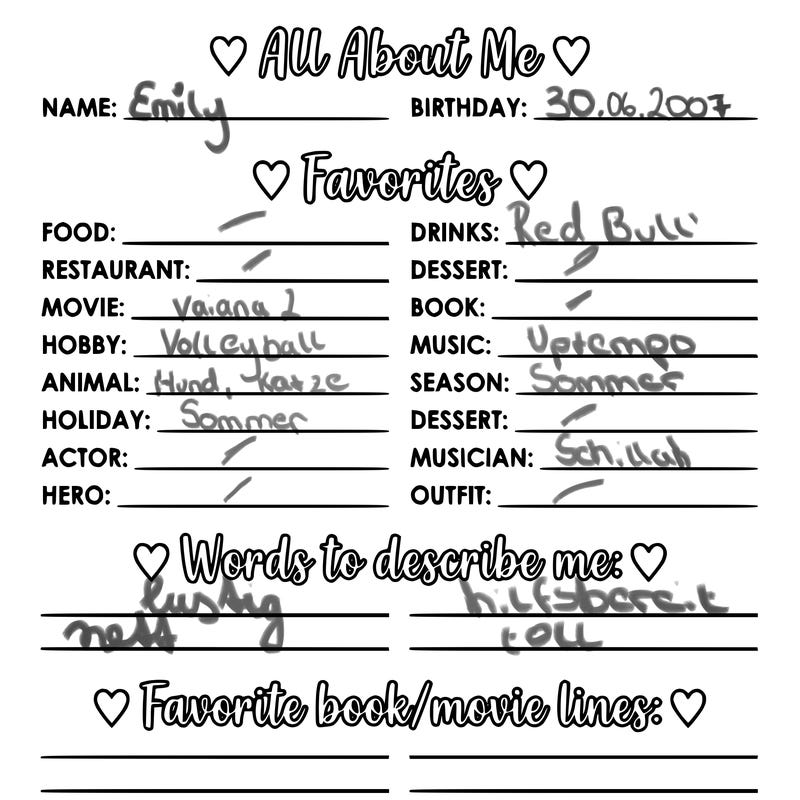 All About Me
NAME: Emily BIRTHDAY: 30.06.2007
Favorites
FOOD: / DRINKS: Red Bull
RESTAURANT: / DESSERT: /
MOVIE: Vaiana 2 BOOK: /
HOBBY: Volleyball MUSIC: Uptempo
ANIMAL: Hund, Katze SEASON: Sommer
HOLIDAY: Sommer DESSERT: /
ACTOR: / MUSICIAN: Schillah
HERO: / OUTFIT: /
Words to describe me:
lustig hilfsbereit
nett toll
Favorite book/movie lines: